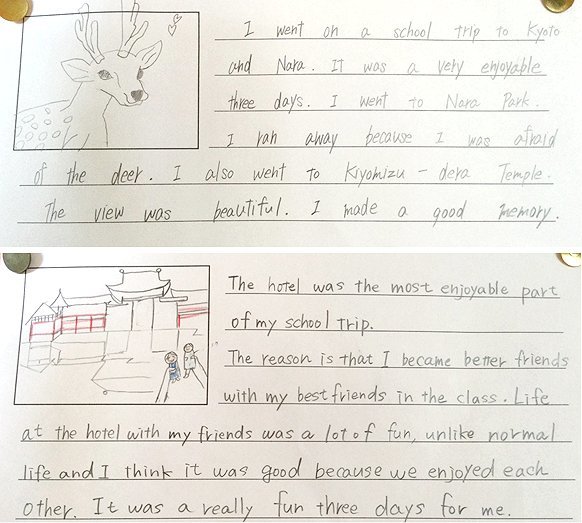 I went on a school trip to Kyoto
and Nara. It was a very enjoyable
three days. I went to Nara Park.
I ran away because I was afraid
of the deer. I also went to Kiyomizu-dera Temple.
The view was beautiful. I made a good memory.
The hotel was the most enjoyable part
of my school trip.
The reason is that I became better friends
with my best friends in the class. Life
at the hotel with my friends was a lot of fun, unlike normal
life and I think it was good because we enjoyed each
other. It was a really fun three days for me.